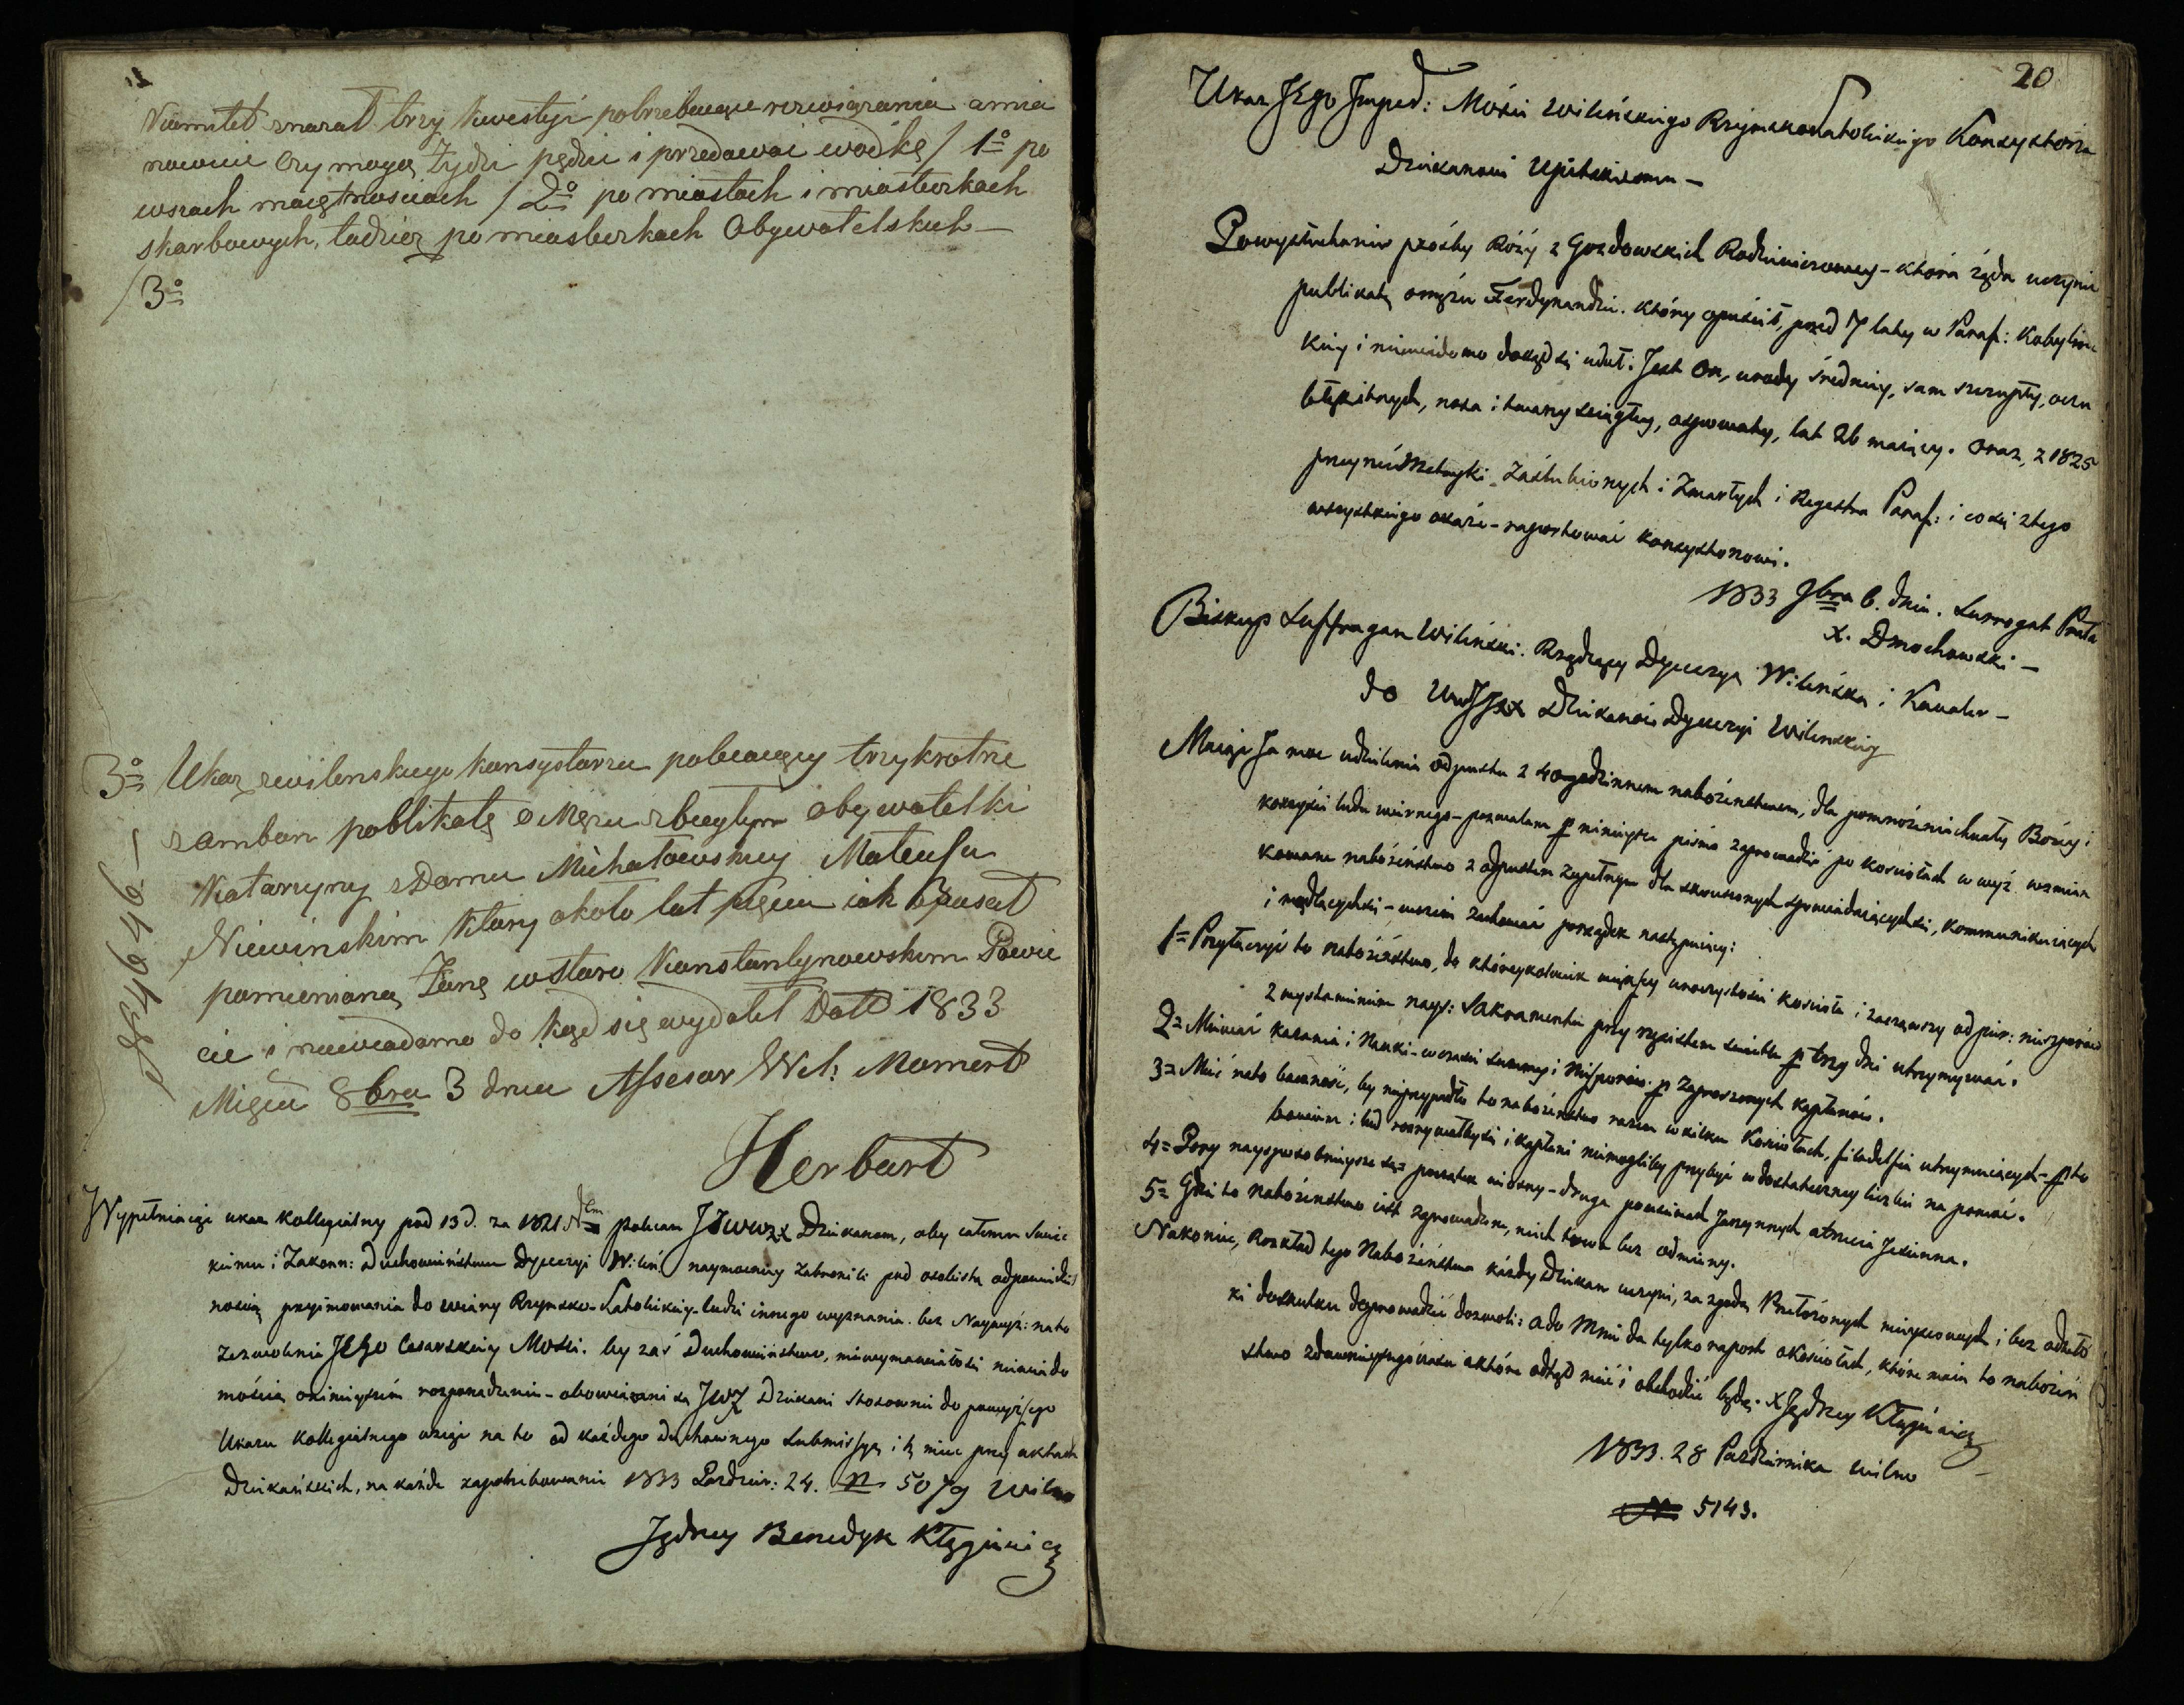 Kommitet znazał trzy kwestyi potrzebuiące rozwiązania a mia
nowicie czy mogą Żydzi pędzić i przedawać wodkę / 1o po
wsiach maiętnościach / 2o po miastach i miasteczkach
skarbowych, tudzież po miasteczkach Obywatelskich —
/ 3o
3o Ukaz z wilenskiego konsystorza polecaiący trzykrotnie
z ambon poblikatę o Mężu zbiegłym obywatelki
Katarzyny z Domu Michałowskiey Mateuszu
Niewinskim ktory około lat pięciu iak opuscił
pomienioną Żonę w staro Konstantynowskim Powie
cie i niewiadomo do kąd się wydalił Datt 1833
Miesca 8bra 3 dnia Assesor Wil: Moment
Herburt
Wypełniaiąc ukaz Kollegialny pod 13 d. za 1821 Nem polecam JJWWXX Dziekanom, aby całemu Swiec
kiemu i Zakonn: Duchowieństwu Dyecezyi Wileń: naymocniey zabronili pod osobistą odpowiedzial
nością przyimowania do wiary Rzymsko-Katolickiey ludzi innego wyznania. bez Naywyż: na to
zezwolenia JEGO Cesarskiey Mości. by zaś Duchowieństwo, niewymawiałosi niewiado
mością o ninieyszém rozporządzeniu - obowiązani są JWX Dziekani stosownie do powyższego
Ukazu Kollegialnego wziąć na to od każdego duchownego Submissyą i tę miec przy aktach
Dziekańskich, na każde zapotrzebowanie 1833 Pazdzier: 24. N 5079 Wilno
Jędrzey Benedyk Kłągiewicz
20
Ukaz JEgo Imperd: Mości Wileńskiego Rzymsko Katolickiego Konsystorza
Dziekanowi Upitskiemu —
Po wysłuchaniu prośby Róży z Gozdowskich Radzimierowey - która żąda uczynić
publikatę o mężu Ferdynandzie. który opuścił, przed 7 laty w Paraf: Kobylni
kiey i niewiadomo dokąd się udał. Jest on, urody średniey, sam szczupły, oczu
błękitnych, nosa i twarzy sciągłey, ospowaty, lat 26 maiący. Oraz, z 1825
przeyrzéć Metryki Zaślubionych i Zmarłych i Regestra Paraf: i co się z tego
wszystkiego okaże - raportować Konsystorowi.
1833 9bra 6. dnia. Surrogat Prała
X. Dmochowski —
Biskup Suffragan Wileński. Rządzący Dyecezyą Wileńską i Kawaler —
do WJJXX Dziekanów Dyecezyi Wilenskiey
Maiąc Ja moc udzielenia odpustu z 40godzinnem nabożenstwem, dla pomnożenia chwały Bożey i
korzyści ludu wiernego - pozwalam p ninieysze pismo zaprowadzić po kościołach w wyż wzmian
kowane nabożeństwo z odpustem zupełnym dla skruszonych spowiadaiącychsię, kommunikuiących
i modlącychsię - wszem zachować porządek następuiący:
1= Przyłączyć to nabożeństwo, do któreykolwiek mieyscowey uroczystości kościoła i zacząwszy od pier: nieszporów
z wystawieniem nayś: SAKramentu przy rzęsistem świetle p trzy dni utrzymywać.
2= Miewać kazania i Nauki - w czasie summy i Nieszporów. p zaproszonych kapłanów.
3= Mieć na to baczność, by nieprzypadło to nabożeństwo razem w kilku Kościołach, filadelfią utrzymuiących - p to
bowiem i lud rozrywałbysię i kapłani niemogliby przybyć w dostateczney liczbie na pomoc.
4= Pory nayspsobnieysze są= początek wiosny - druga po zasiewach jarzynnych a trzecia Jesienna.
5= Gdzie to nabożeństwo iest zaprowadzone, niech trwa bez odmiany.
Nakoniec, Rozkład tego Nabożeństwa każdy Dziekan uczyni, za zgodą Przełożonych mieyscowych, i bez odwło
ki do skutku doprowadzić dozwoli: a do Mnie da tylko raport o kościołach, które maią to nabożeń
stwo z dawnieyszego czasu a które odtąd mieć i obchodzić będą. X Jędrzey Kłągiewicz
1833. 28 Pazdziernika Wilno —
N 5143.